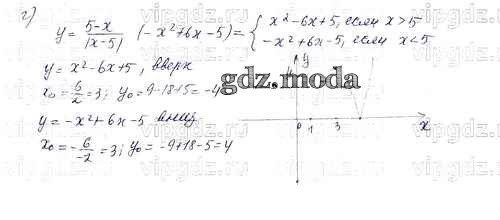 г)
y = 5-x / |x-5| (-x²+6x-5) = { x²-6x+5, если x>5
-x²+6x-5, если x<5
y = x²-6x+5, вверх
x₀ = 6/2 = 3; y₀ = 9-18+5 = -4
y = -x²+6x-5 вниз
x₀ = -6/-2 = 3; y₀ = -9+18-5 = 4
y
0 1 3 x
gdz.moda
vipgdz.com